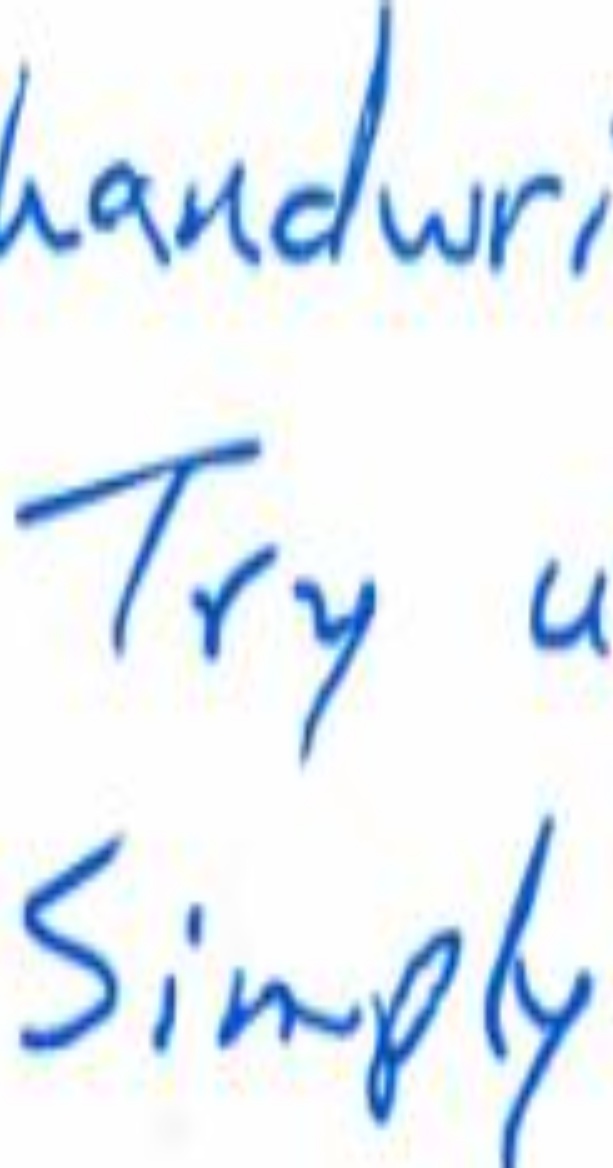 handwri
Try u
Simply